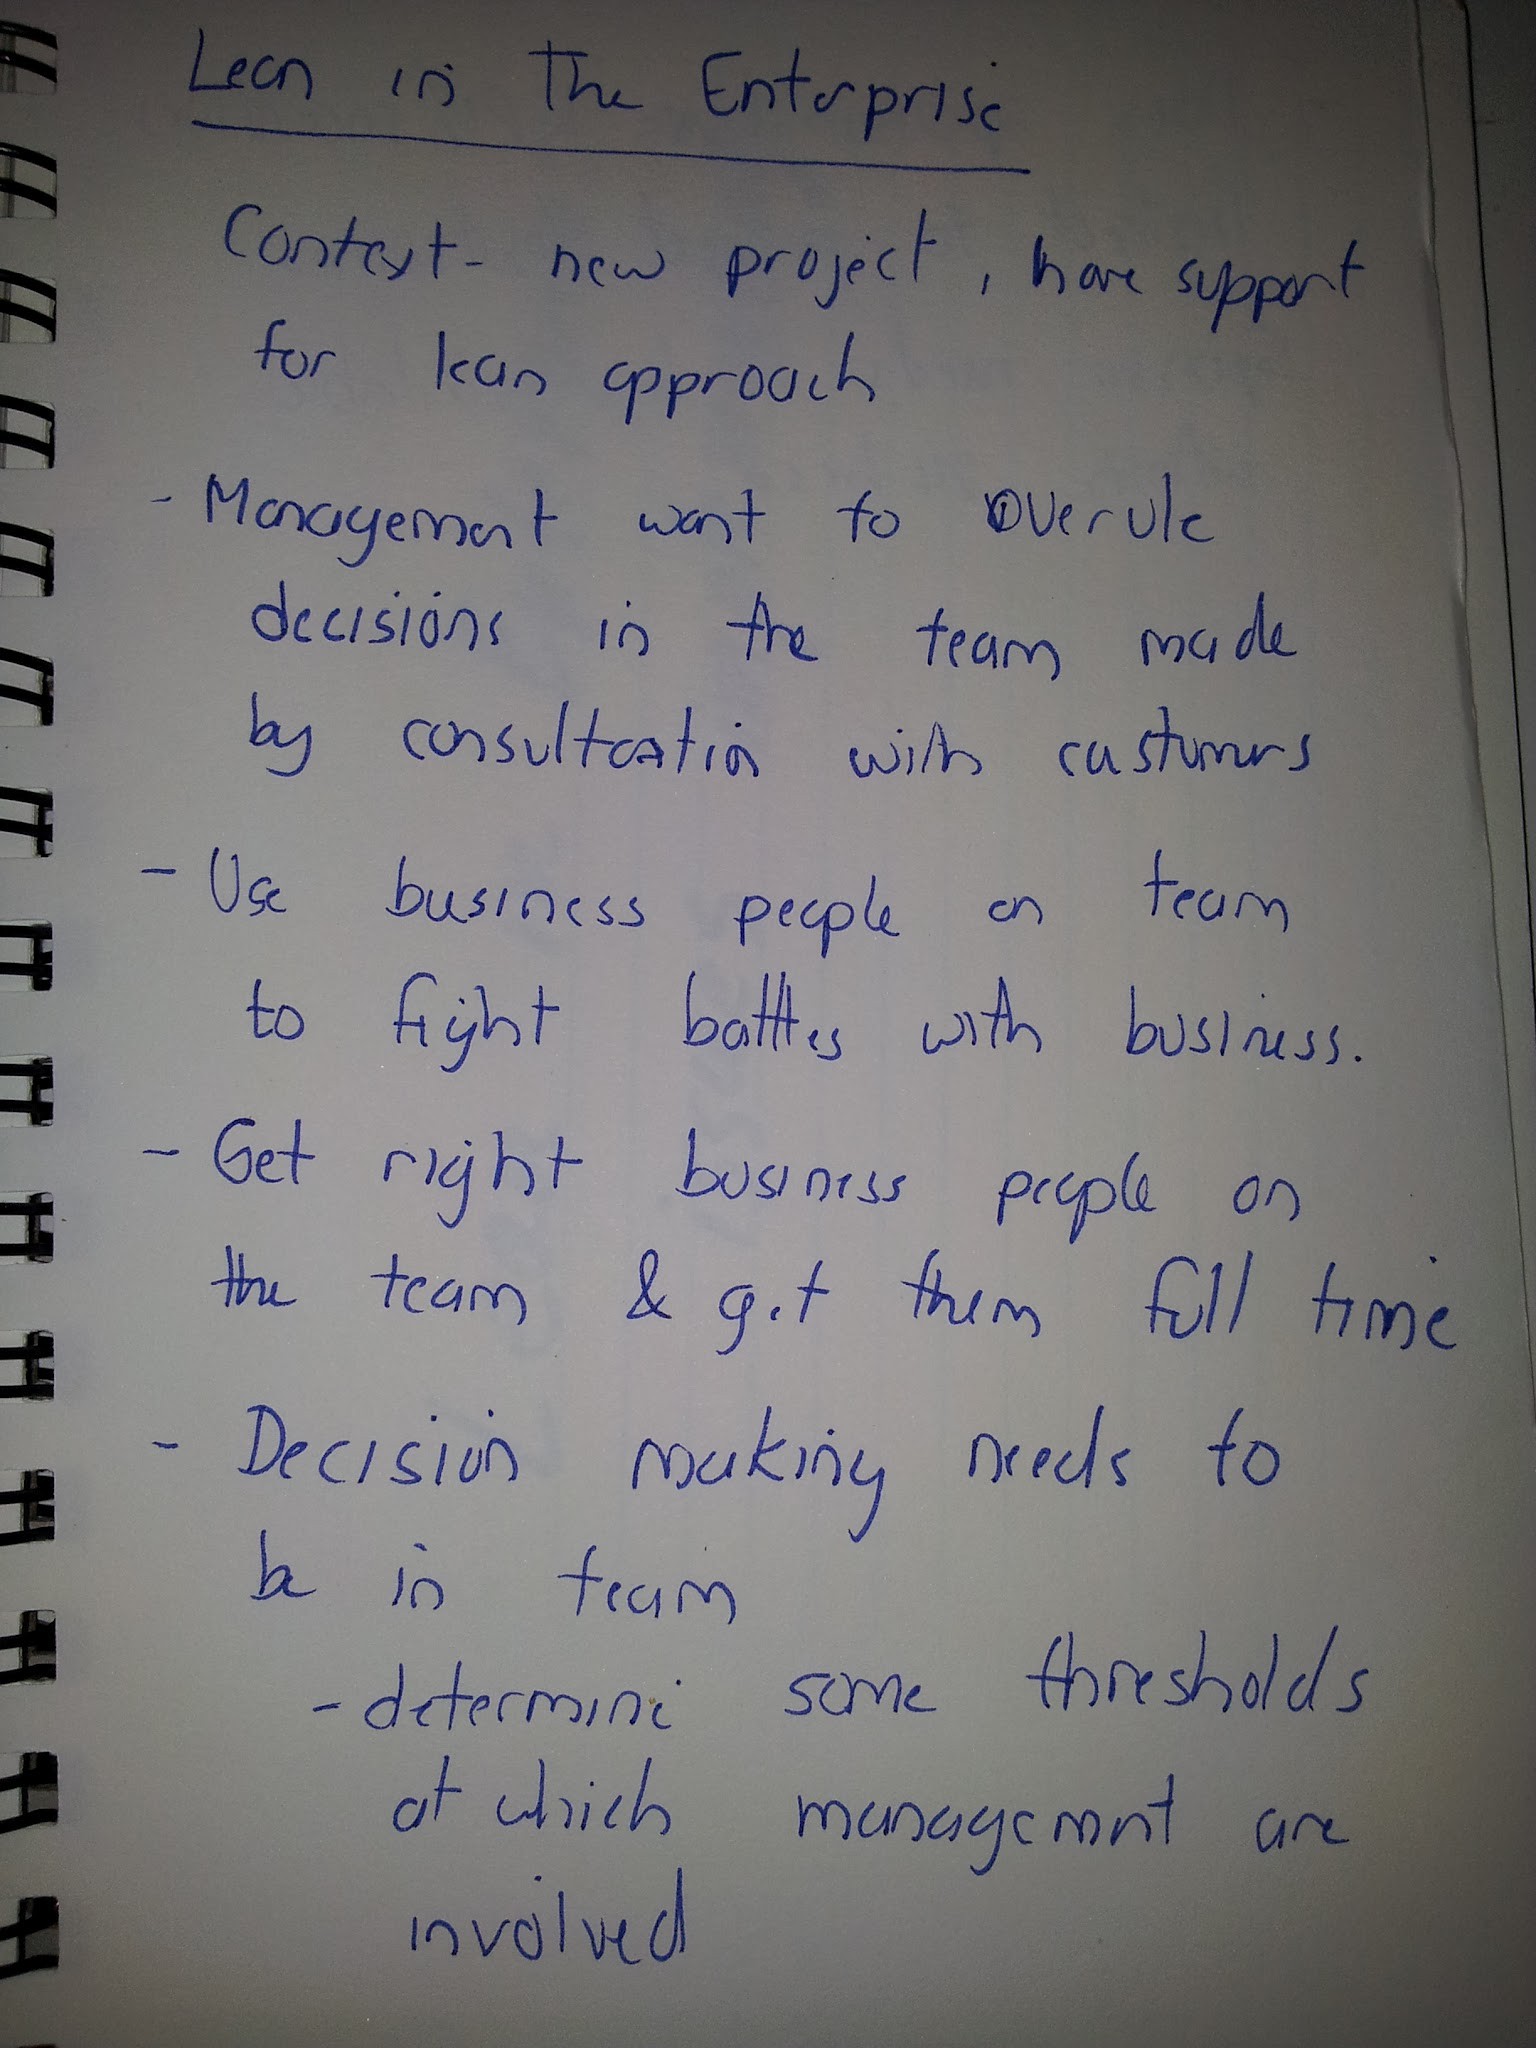 Lean in The Enterprise
Context - new project, have support
for lean approach
- Management want to overule
decisions in the team made
by consultation with customers
- Use business people on team
to fight battles with business.
- Get right business people on
the team & get them full time
- Decision making needs to
be in team
- determine some thresholds
at which management are
involved